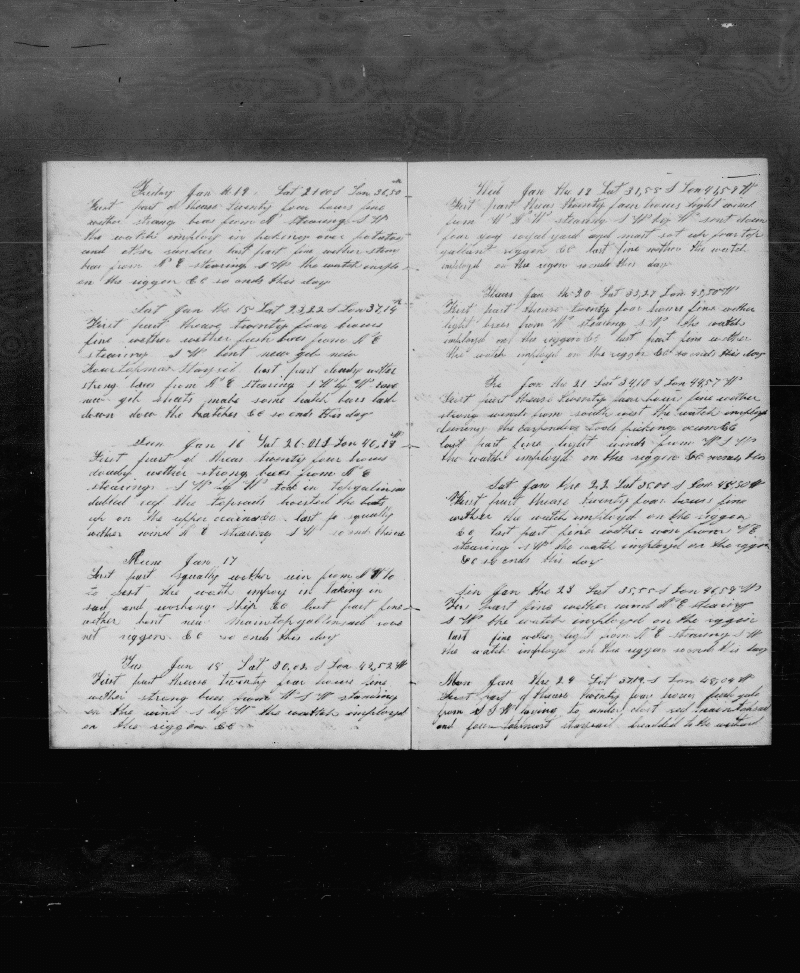 Friday Jan th 14 Lat 21.00 S Lon 36,50 W
First part of thease twenty four hours fine
wether strong brees from N stearing S W
the watch employ in picking over potatoes
and other Last part fine wether strong
brees from N E stearing S W the watch
on the riggen &c so ends this day
Sat Jan the 15 Lat 23,22 S Lon 37,14 W
First part thease twenty four hours
fine wether wether fresh brees from N E
stearing S W bent new gib new
four topmas staysel last part cloudy wether
strong brees from N E stearing S W by W
new gib sheats made some hatch bars
down the hatches &c so ends this day
Sun Jan 16 Lat 26.01 S Lon 40,18 W
First part of theas twenty four hours
cloudy wether strong brees from N E
stearing S W by W took in topgalinsm
dubbel reef the topsails hoisted the boats
up on the upper crains &c Last p squally
wether wind N E stearing S W so ends
Mun Jan 17
First part squally wether win from N W to
the watch imploy in taking in
sail and working ship &c last part fine
wether bent new maintopgalinsail
riggen &c so ends this day
Tus Jan 18 Lat 30,02 S Lon 42,52 W
First part thease twenty four hours fine
wether strong brees W S W standing
on the wind S by W the watch imployd
on the riggen &c
Wed Jan the 19 Lat 31,55 S Lon 41,59 W
First part theas twenty four hours light wind
from W N W stearing S W by W sent down
four royal yard and mast set up four top
gallant riggen &c last fine wether the watch
imployd on the rigen so ends this day
Theus Jan th 20 Lat 33,27 Lon 43,50 W
First part thease twenty four hours fine wether
light brees from W stearing S W the watch
imployed on the riggen &c last part fine wether
the watch imployd on the riggen &c so ends this day
Fri Jan the 21 Lat 34,10 S Lon 44,57 W
First part thease twenty four hours fine wether
strong winds from south west the watch imployd
the carpender tools picking ocum &c
last part fine light winds from W S W
the watch imployd on the riggen &c so ends this
Sat Jan the 22 Lat 35.00 S Lon 45,50 W
First part thease twenty four hours fine
wether the watch imployed on the riggen
&c last part fine wether win from N E
stearing S W the watch imployed on the riggen
&c so ends this day
Sun Jan the 23 Lat 35,55 S Lon 46,59 W
First part fine wether wind N E stearing
S W the watch imployed on the riggen
last fine wether light from N E stearing S W
the watch imployd on the riggen so ends this day
Mon Jan the 24 Lat 37,19 S Lon 48,04 W
First part of theas twenty four hours fresh gale
from S S W laying to under clost reef main topsail
and four topmast staysail headded to the westward